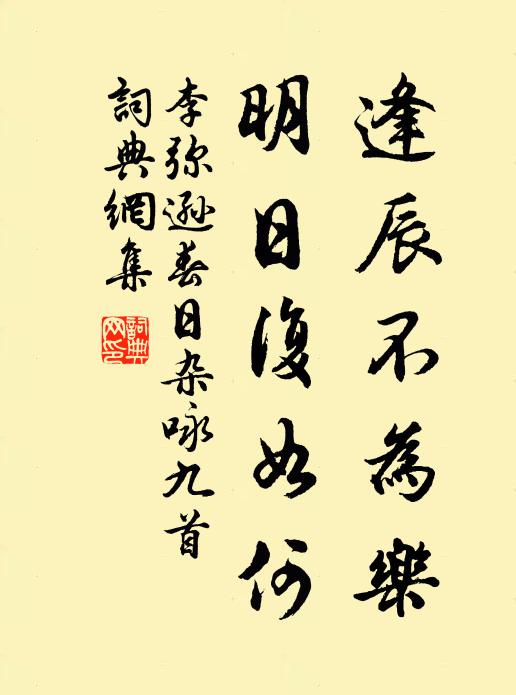 逢辰不為樂
明日復如何
李弥遜春日杂咏九首
詞典網集
詞典
网印